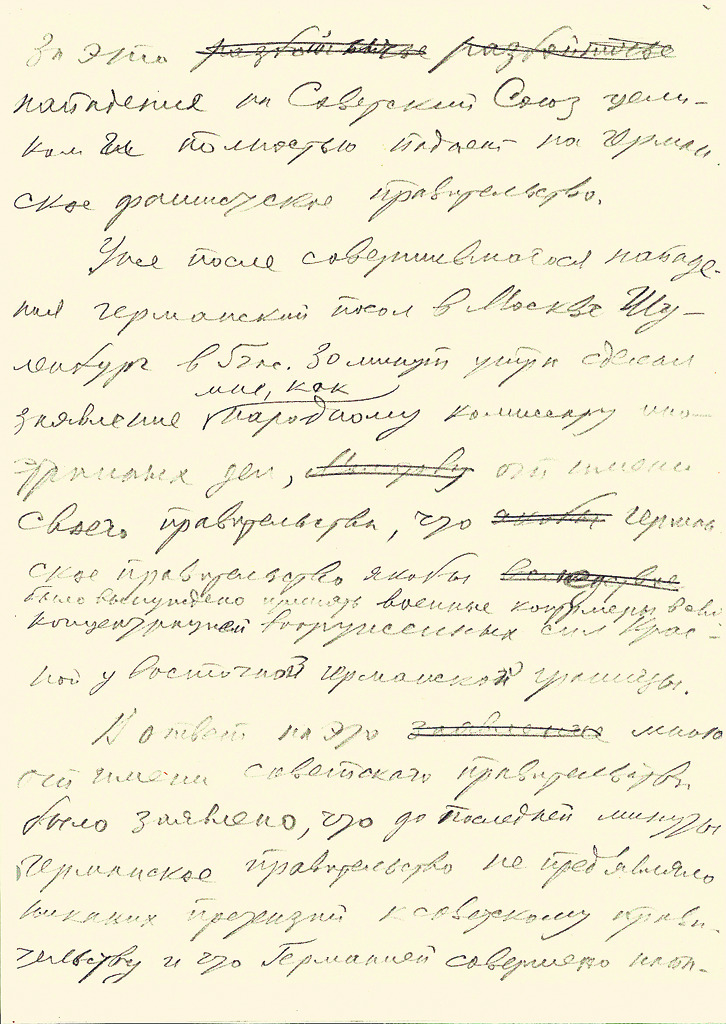 За это разбойничье разбойничье
нападение на Советский Союз цели-
ком и полностью падает на герман
ское фашистское правительство.
Уже после совершившегося нападе-
ния германский посол в Москве Шу-
ленбург в 5 час. 30 минут утра сделал
мне, как
заявление народному комиссару ино-
странных дел, Молотову от имени
своего правительства, что якобы герман
ское правительство якобы вследствие
было вынуждено принять военные контрмеры в связи
концентрацией вооруженных сил Крас-
ной у восточной германской границы.
В ответ на это заявление мною
от имени советского правительства
было заявлено, что до последней минуты
германское правительство не предъявляло
никаких претензий к советскому прави-
тельству и что Германией совершено напа-